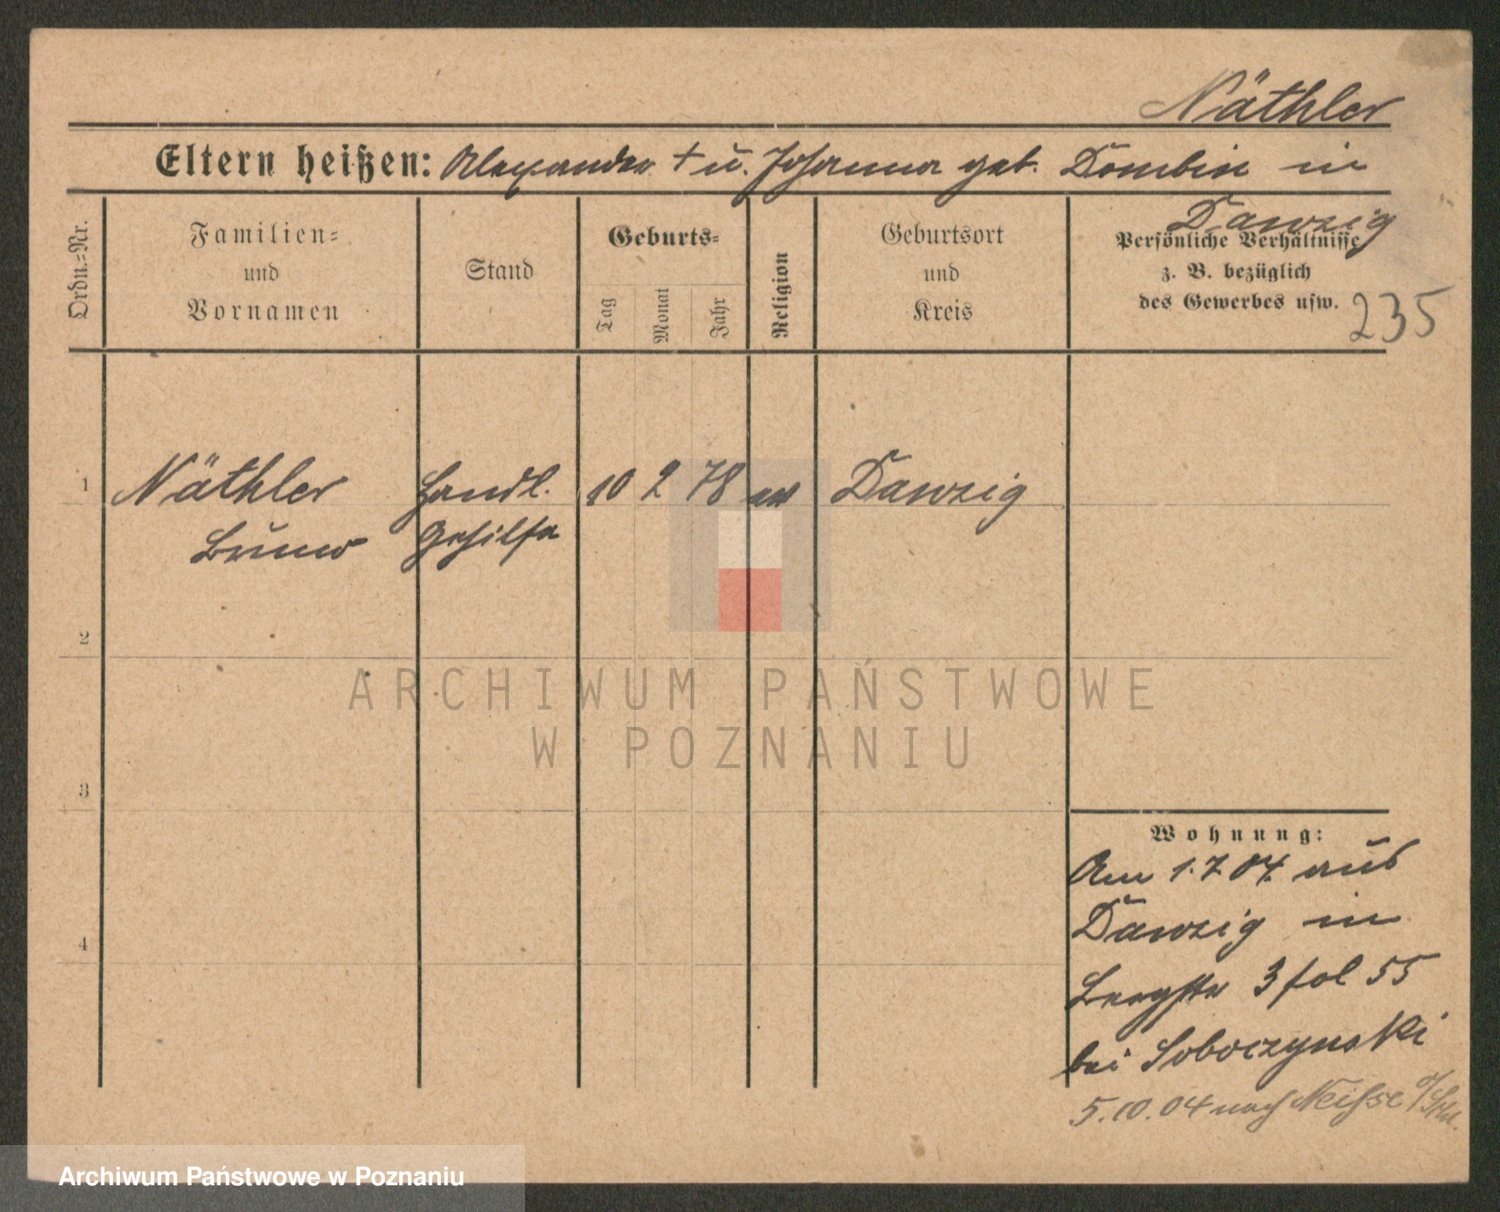 Näthler
Eltern heißen: Alexander † u. Johanna geb. Dombin in
Danzig
Ordn.=Nr.
Familien=
und
Vornamen
Stand
Geburts=
Tag
Monat
Jahr
Religion
Geburtsort
und
Kreis
Persönliche Verhältnisse
z. B. bezüglich
des Gewerbes usw.
235
1
Näthler
Handl.
10 2 78 ev
Danzig
Bruno
Gehilfe
2
3
4
Wohnung:
Am 1.7.04. aus
Danzig in
Bergstr 3 fol 55
bei Soboczynski
5.10.04 nach Neisse
ARCHIWUM PAŃSTWOWE
W POZNANIU
Archiwum Państwowe w Poznaniu